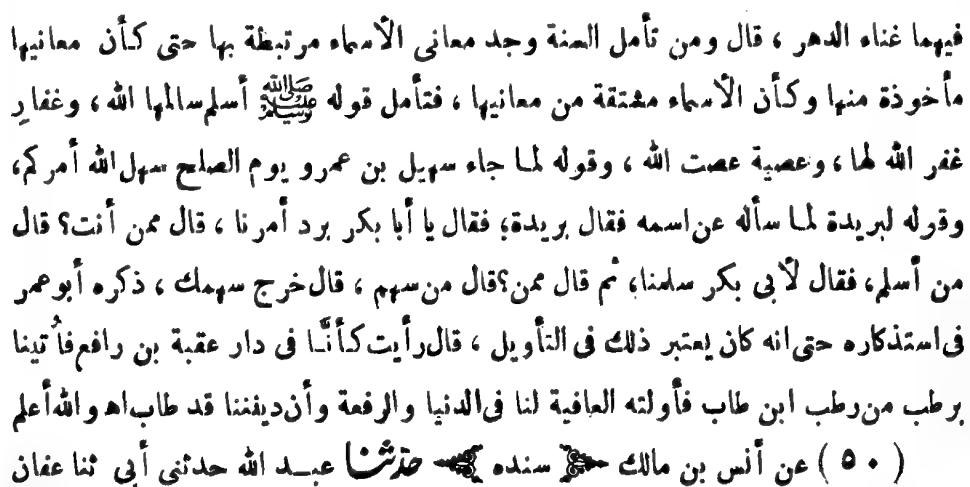 فيهما غناء الدهر ، قال ومن تأمل السنة وجد معانى الأسماء مرتبطة بها حتى كأن معانيها
مأخوذة منها وكأن الأسماء مشتقة من معانيها ، فتأمل قوله ﷺ أسلم سالمها الله ، وغفار
غفر الله لها ، وعصية عصت الله ، وقوله لما جاء سهيل بن عمرو يوم الصلح سهل الله أمركم،
وقوله لبريدة لما سأله عن اسمه فقال بريدة؛ فقال يا أبا بكر برد أمرنا ، قال ممن أنت؟ قال
من أسلم، فقال لأبى بكر سلمنا؛ ثم قال ممن؟ قال من سهم ، قال خرج سهمك ، ذكره أبو عمر
فى استذكاره حتى انه كان يعتبر ذلك فى التأويل ، قال رأيت كأنَّا فى دار عقبة بن رافع فأُتينا
برطب من رطب ابن طاب فأولته العافية لنا فى الدنيا والرفعة وأن ديننا قد طاب اه والله أعلم
( ٥٠ ) عن أنس بن مالك ﴿ سنده ﴾ حدّثنا عبد الله حدثنى أبى ثنا عفان